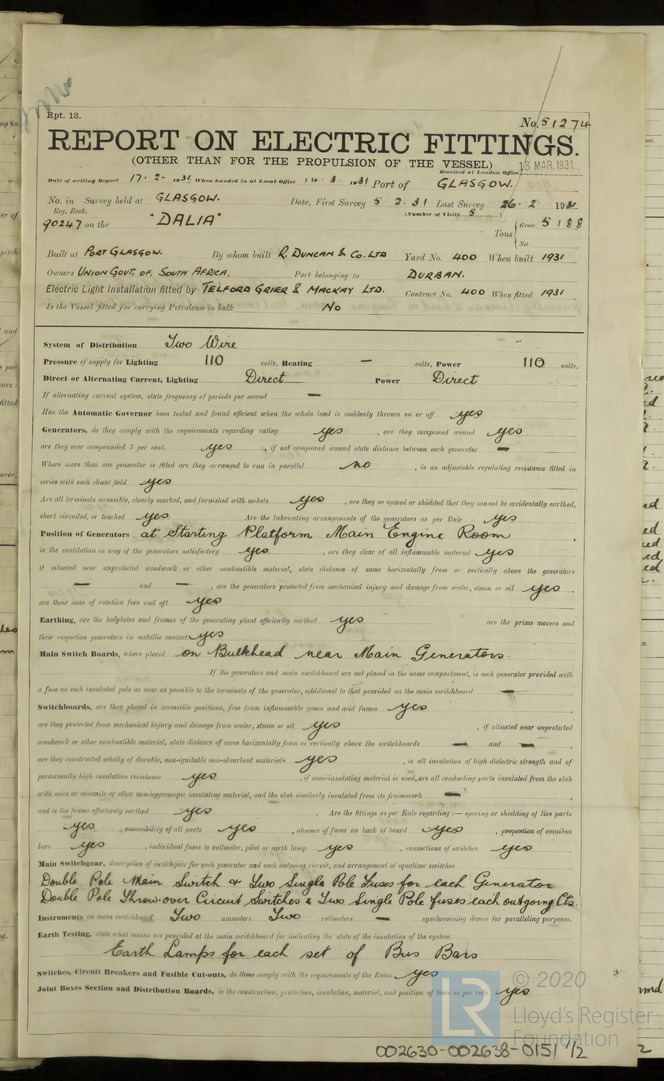 Rpt. 13.
No. 51274
REPORT ON ELECTRIC FITTINGS.
(OTHER THAN FOR THE PROPULSION OF THE VESSEL)
18 MAR. 1931
Received at London Office
Date of writing Report 17. 2. 1931. When handed in at Local Office 14. 3. 1931 Port of GLASGOW.
No. in Survey held at GLASGOW. Date, First Survey 5 2. 31 Last Survey 26. 2 1931
Reg. Book. (Number of Visits 5)
90247 on the "DALIA" Tons { Gross 5188
Net
Built at PORT GLASGOW. By whom built R. DUNCAN & CO. LTD Yard No. 400 When built 1931
Owners UNION GOVT. OF SOUTH AFRICA. Port belonging to DURBAN.
Electric Light Installation fitted by TELFORD GRIER & MACKAY LTD. Contract No. 400 When fitted 1931
Is the Vessel fitted for carrying Petroleum in bulk No
System of Distribution Two Wire
Pressure of supply for Lighting 110 volts, Heating — volts, Power 110 volts.
Direct or Alternating Current, Lighting Direct Power Direct
If alternating current system, state frequency of periods per second —
Has the Automatic Governor been tested and found efficient when the whole load is suddenly thrown on or off yes
Generators, do they comply with the requirements regarding rating yes , are they compound wound yes
are they over compounded 5 per cent. yes , if not compound wound state distance between each generator —
Where more than one generator is fitted are they arranged to run in parallel no , is an adjustable regulating resistance fitted in
series with each shunt field yes
Are all terminals accessible, clearly marked, and furnished with sockets yes , are they so spaced or shielded that they cannot be accidentally earthed,
short circuited, or touched yes Are the lubricating arrangements of the generators as per Rule yes
Position of Generators at Starting Platform Main Engine Room
is the ventilation in way of the generators satisfactory yes , are they clear of all inflammable material yes
if situated near unprotected woodwork or other combustible material, state distance of same horizontally from or vertically above the generators
— and — , are the generators protected from mechanical injury and damage from water, steam or oil yes
are their axes of rotation fore and aft yes
Earthing, are the bedplates and frames of the generating plant efficiently earthed yes are the prime movers and
their respective generators in metallic contact yes
Main Switch Boards, where placed on Bulkhead near Main Generators.
If the generators and main switchboard are not placed in the same compartment, is each generator provided with
a fuse on each insulated pole as near as possible to the terminals of the generator, additional to that provided on the main switchboard —
Switchboards, are they placed in accessible positions, free from inflammable gases and acid fumes yes
are they protected from mechanical injury and damage from water, steam or oil yes , if situated near unprotected
woodwork or other combustible material, state distance of same horizontally from or vertically above the switchboards — and —
are they constructed wholly of durable, non-ignitable non-absorbent materials yes , is all insulation of high dielectric strength and of
permanently high insulation resistance yes , if semi-insulating material is used, are all conducting parts insulated from the slab
with mica or micanite or other non-hygroscopic insulating material, and the slab similarly insulated from its framework —
and is the frame effectively earthed yes . Are the fittings as per Rule regarding :— spacing or shielding of live parts
yes , accessibility of all parts yes , absence of fuses on back of board yes , proportion of omnibus
bars yes , individual fuses to voltmeter, pilot or earth lamp yes , connections of switches yes
Main Switchgear, description of switchgear for each generator and each outgoing circuit, and arrangement of equalizer switches
Double Pole Main Switch & Two Single Pole Fuses for each Generator
Double Pole Throw-over Circuit Switches & Two Single Pole fuses each outgoing Cts.
Instruments on main switchboard Two ammeters Two voltmeters — synchronising device for paralleling purposes.
Earth Testing, state what means are provided at the main switchboard for indicating the state of the insulation of the system
Earth Lamps for each set of Bus Bars
Switches, Circuit Breakers and Fusible Cut-outs, do these comply with the requirements of the Rules yes
Joint Boxes Section and Distribution Boards, is the construction, protection, insulation, material, and position of these as per rule yes
© 2020
LR
Lloyd's Register
Foundation
002630-002638-0151 1/2